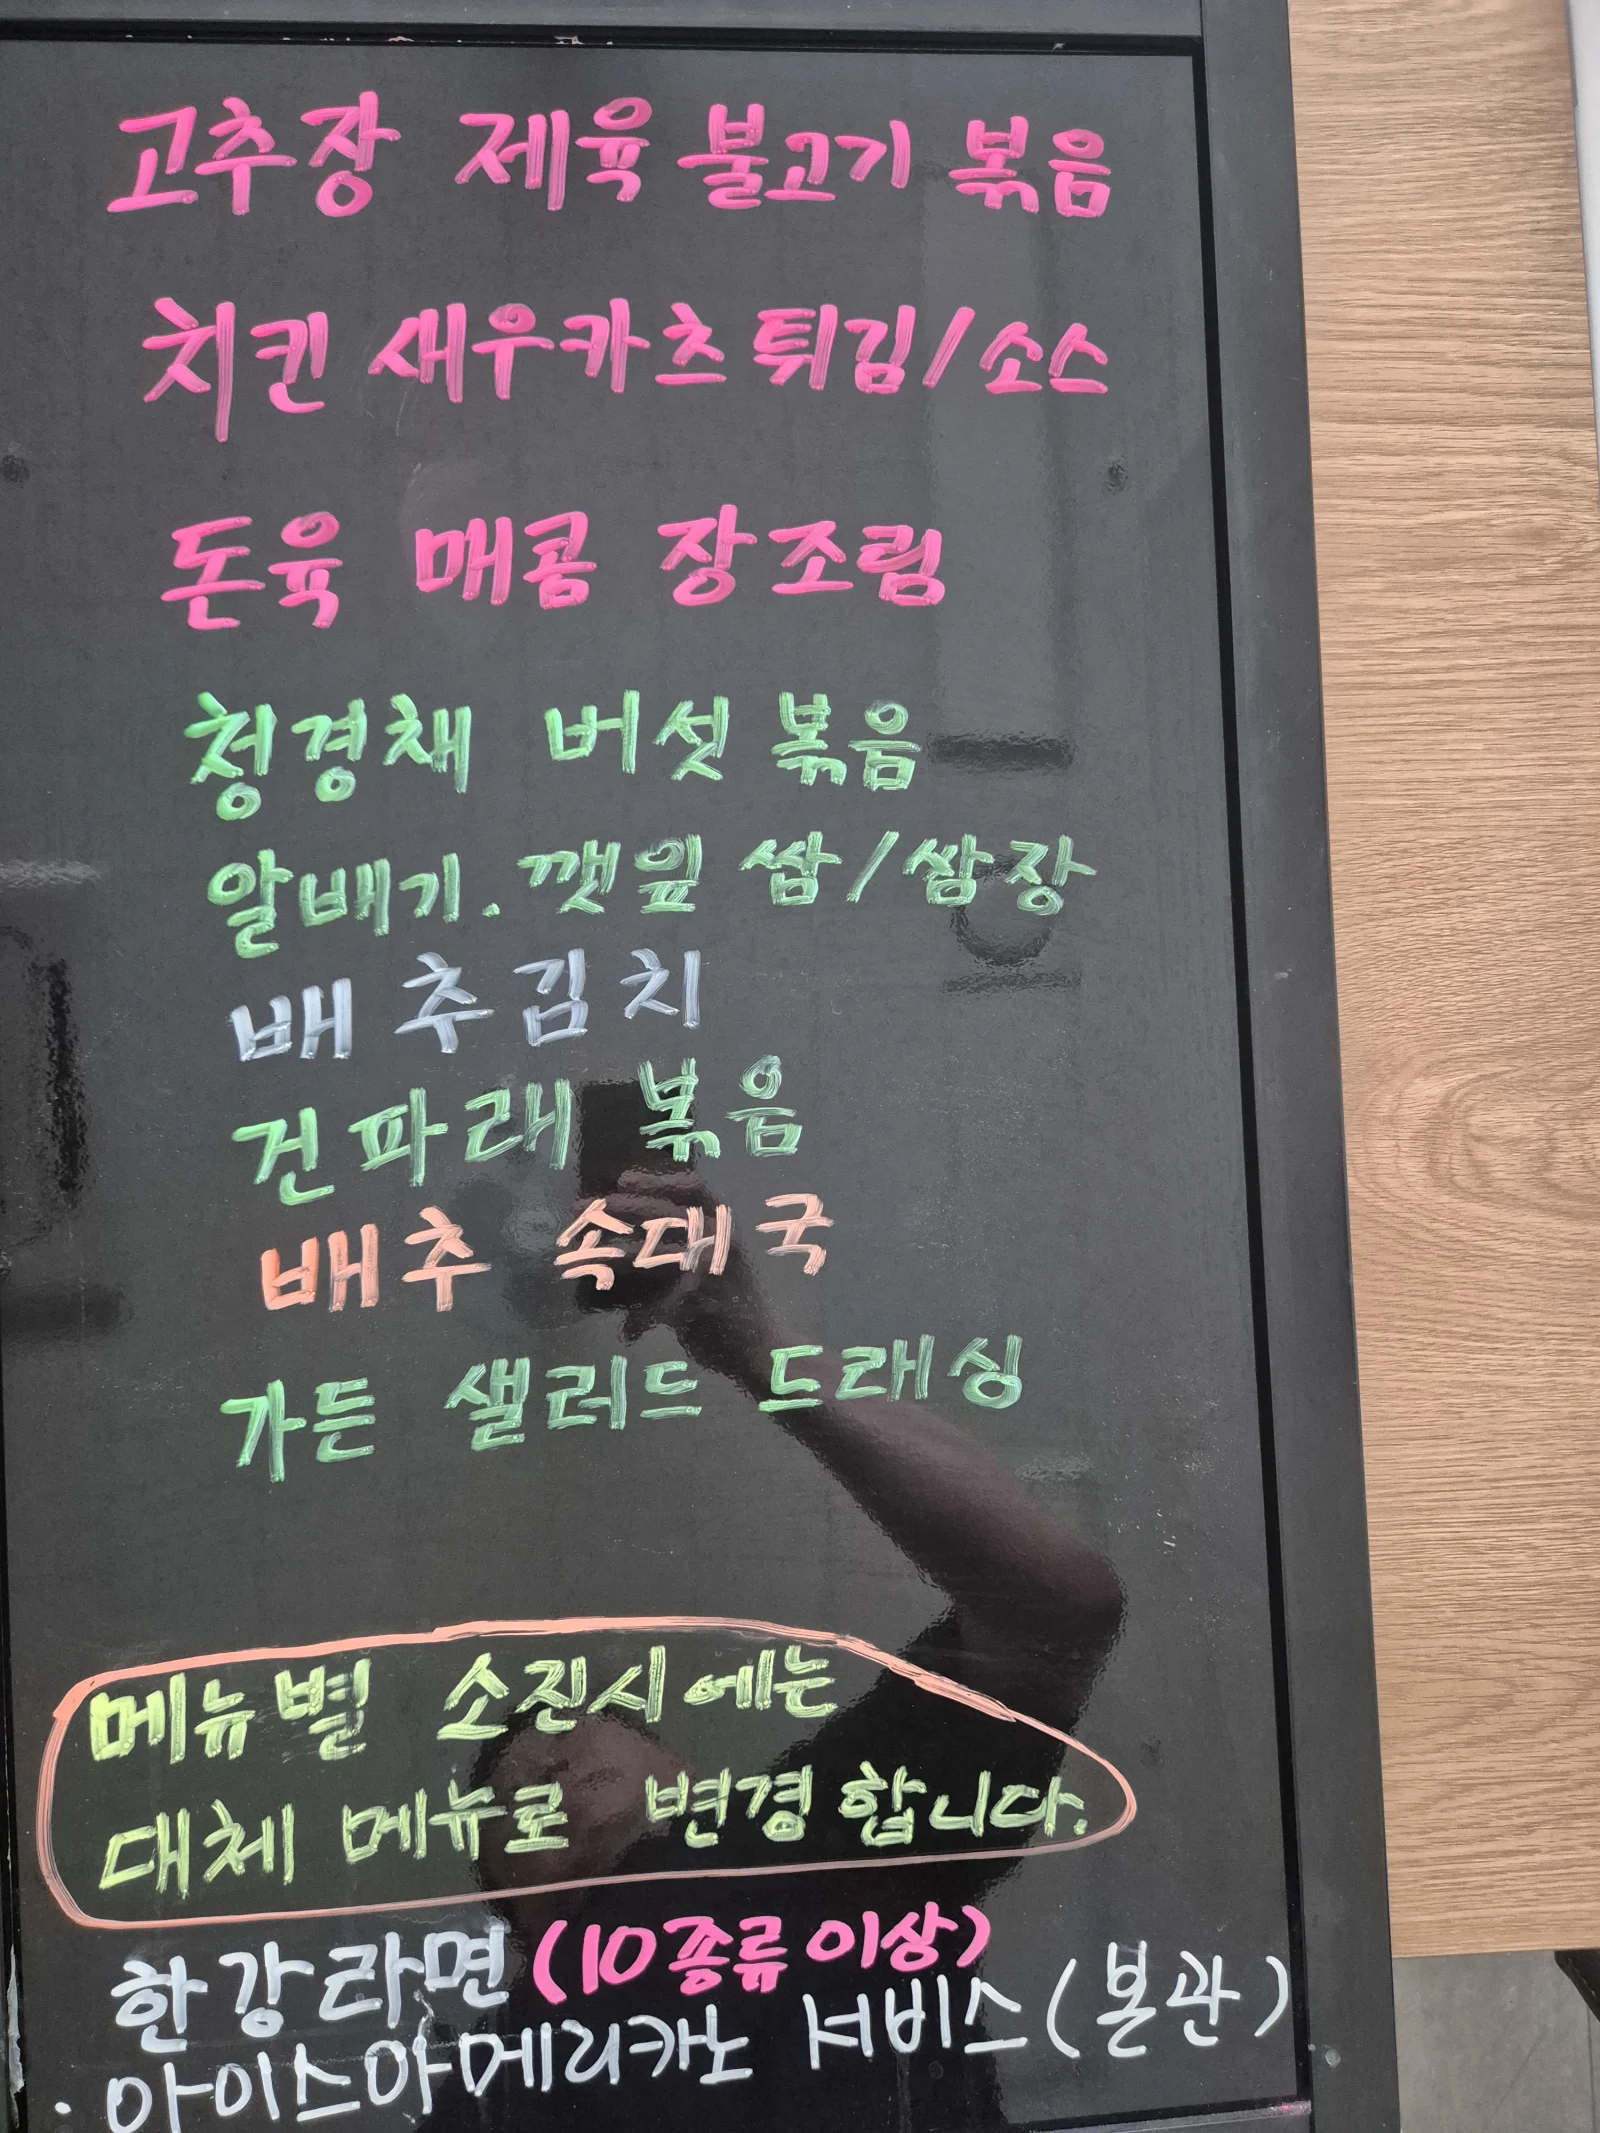 고추장 제육 불고기 볶음
치킨 새우카츠 튀김/소스
돈육 매콤 장조림
청경채 버섯 볶음
알배기.깻잎 쌈/쌈장
배추김치
건파래 볶음
배추 속대국
가든 샐러드 드래싱
메뉴별 소진시에는
대체 메뉴로 변경합니다.
한강라면(10종류이상)
·아이스아메리카노 서비스(본관)